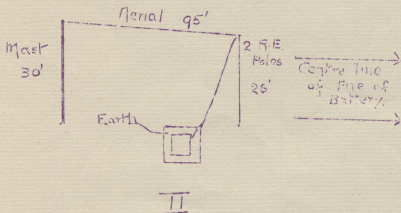 Aerial 95'
Mast
30'
2 R.E.
Poles
26'
Centre line
of Fire of
Battery
Earth